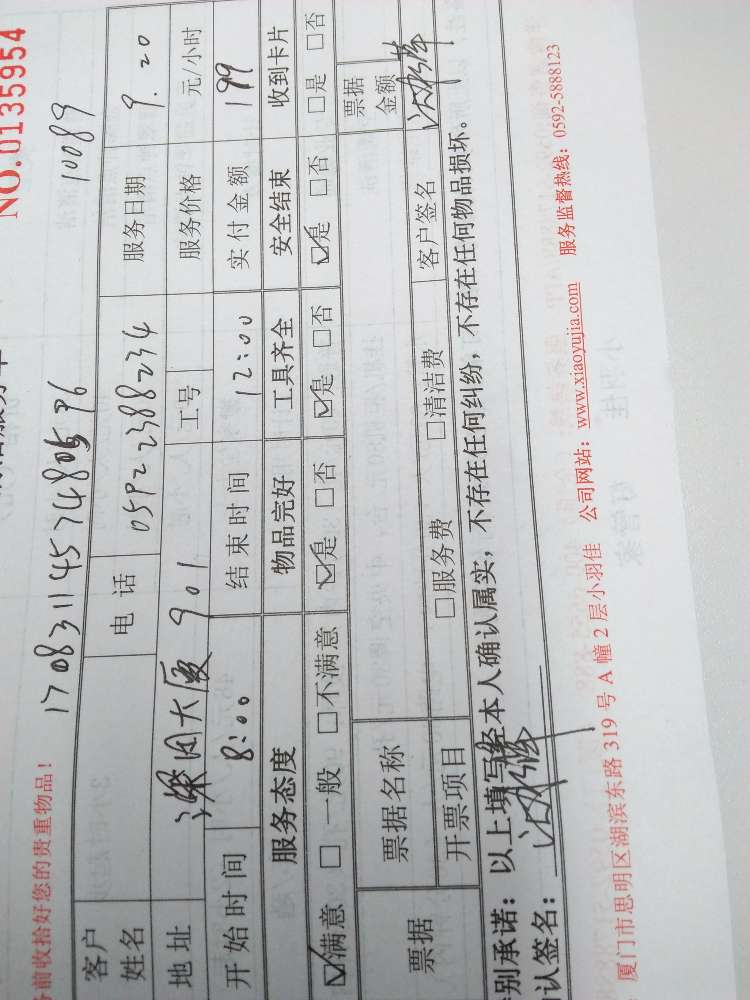 NO.0135954
前收拾好您的贵重物品！
1708311457480596 10089
客户姓名 电话 0592 2388234 服务日期 9.20
地址 大厦 901 工号 服务价格 元/小时
开始时间 8:00 结束时间 12:00 实付金额 199
服务态度 物品完好 工具齐全 安全结束 收到卡片
☑满意 □一般 □不满意 ☑是 □否 ☑是 □否 ☑是 □否 □是 □否
票据 票据名称 票据金额
开票项目 □服务费 □清洁费 客户签名
别承诺：以上填写经本人确认属实，不存在任何纠纷，不存在任何物品损坏。
认签名：
厦门市思明区湖滨东路 319 号 A 幢 2 层小羽佳 公司网站：www.xiaoyujia.com 服务监督热线：0592-5888123